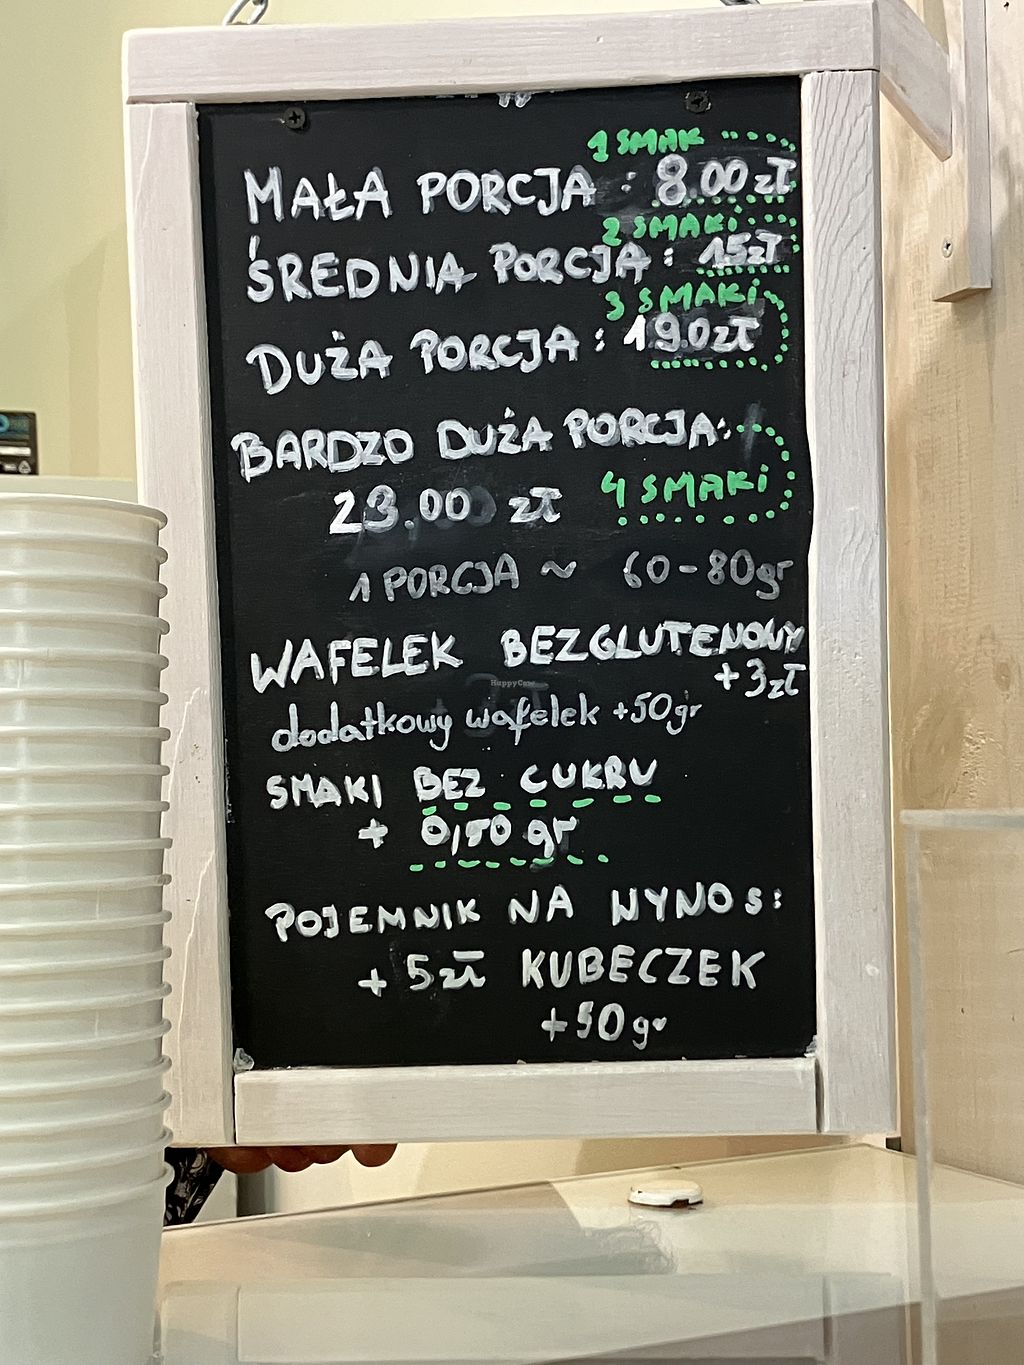 1 SMAK
MAŁA PORCJA : 8.00 zł
2 SMAKI
ŚREDNIA PORCJA : 15zł
3 SMAKI
DUŻA PORCJA : 19.0zł
BARDZO DUŻA PORCJA:
23.00 zł
4 SMAKI
1 PORCJA ~ 60-80gr
WAFELEK BEZGLUTENOWY
+3zł
HappyCow
dodatkowy wafelek +50gr
SMAKI BEZ CUKRU
+ 0,50 gr
POJEMNIK NA WYNOS:
+ 5zł KUBECZEK
+50gr